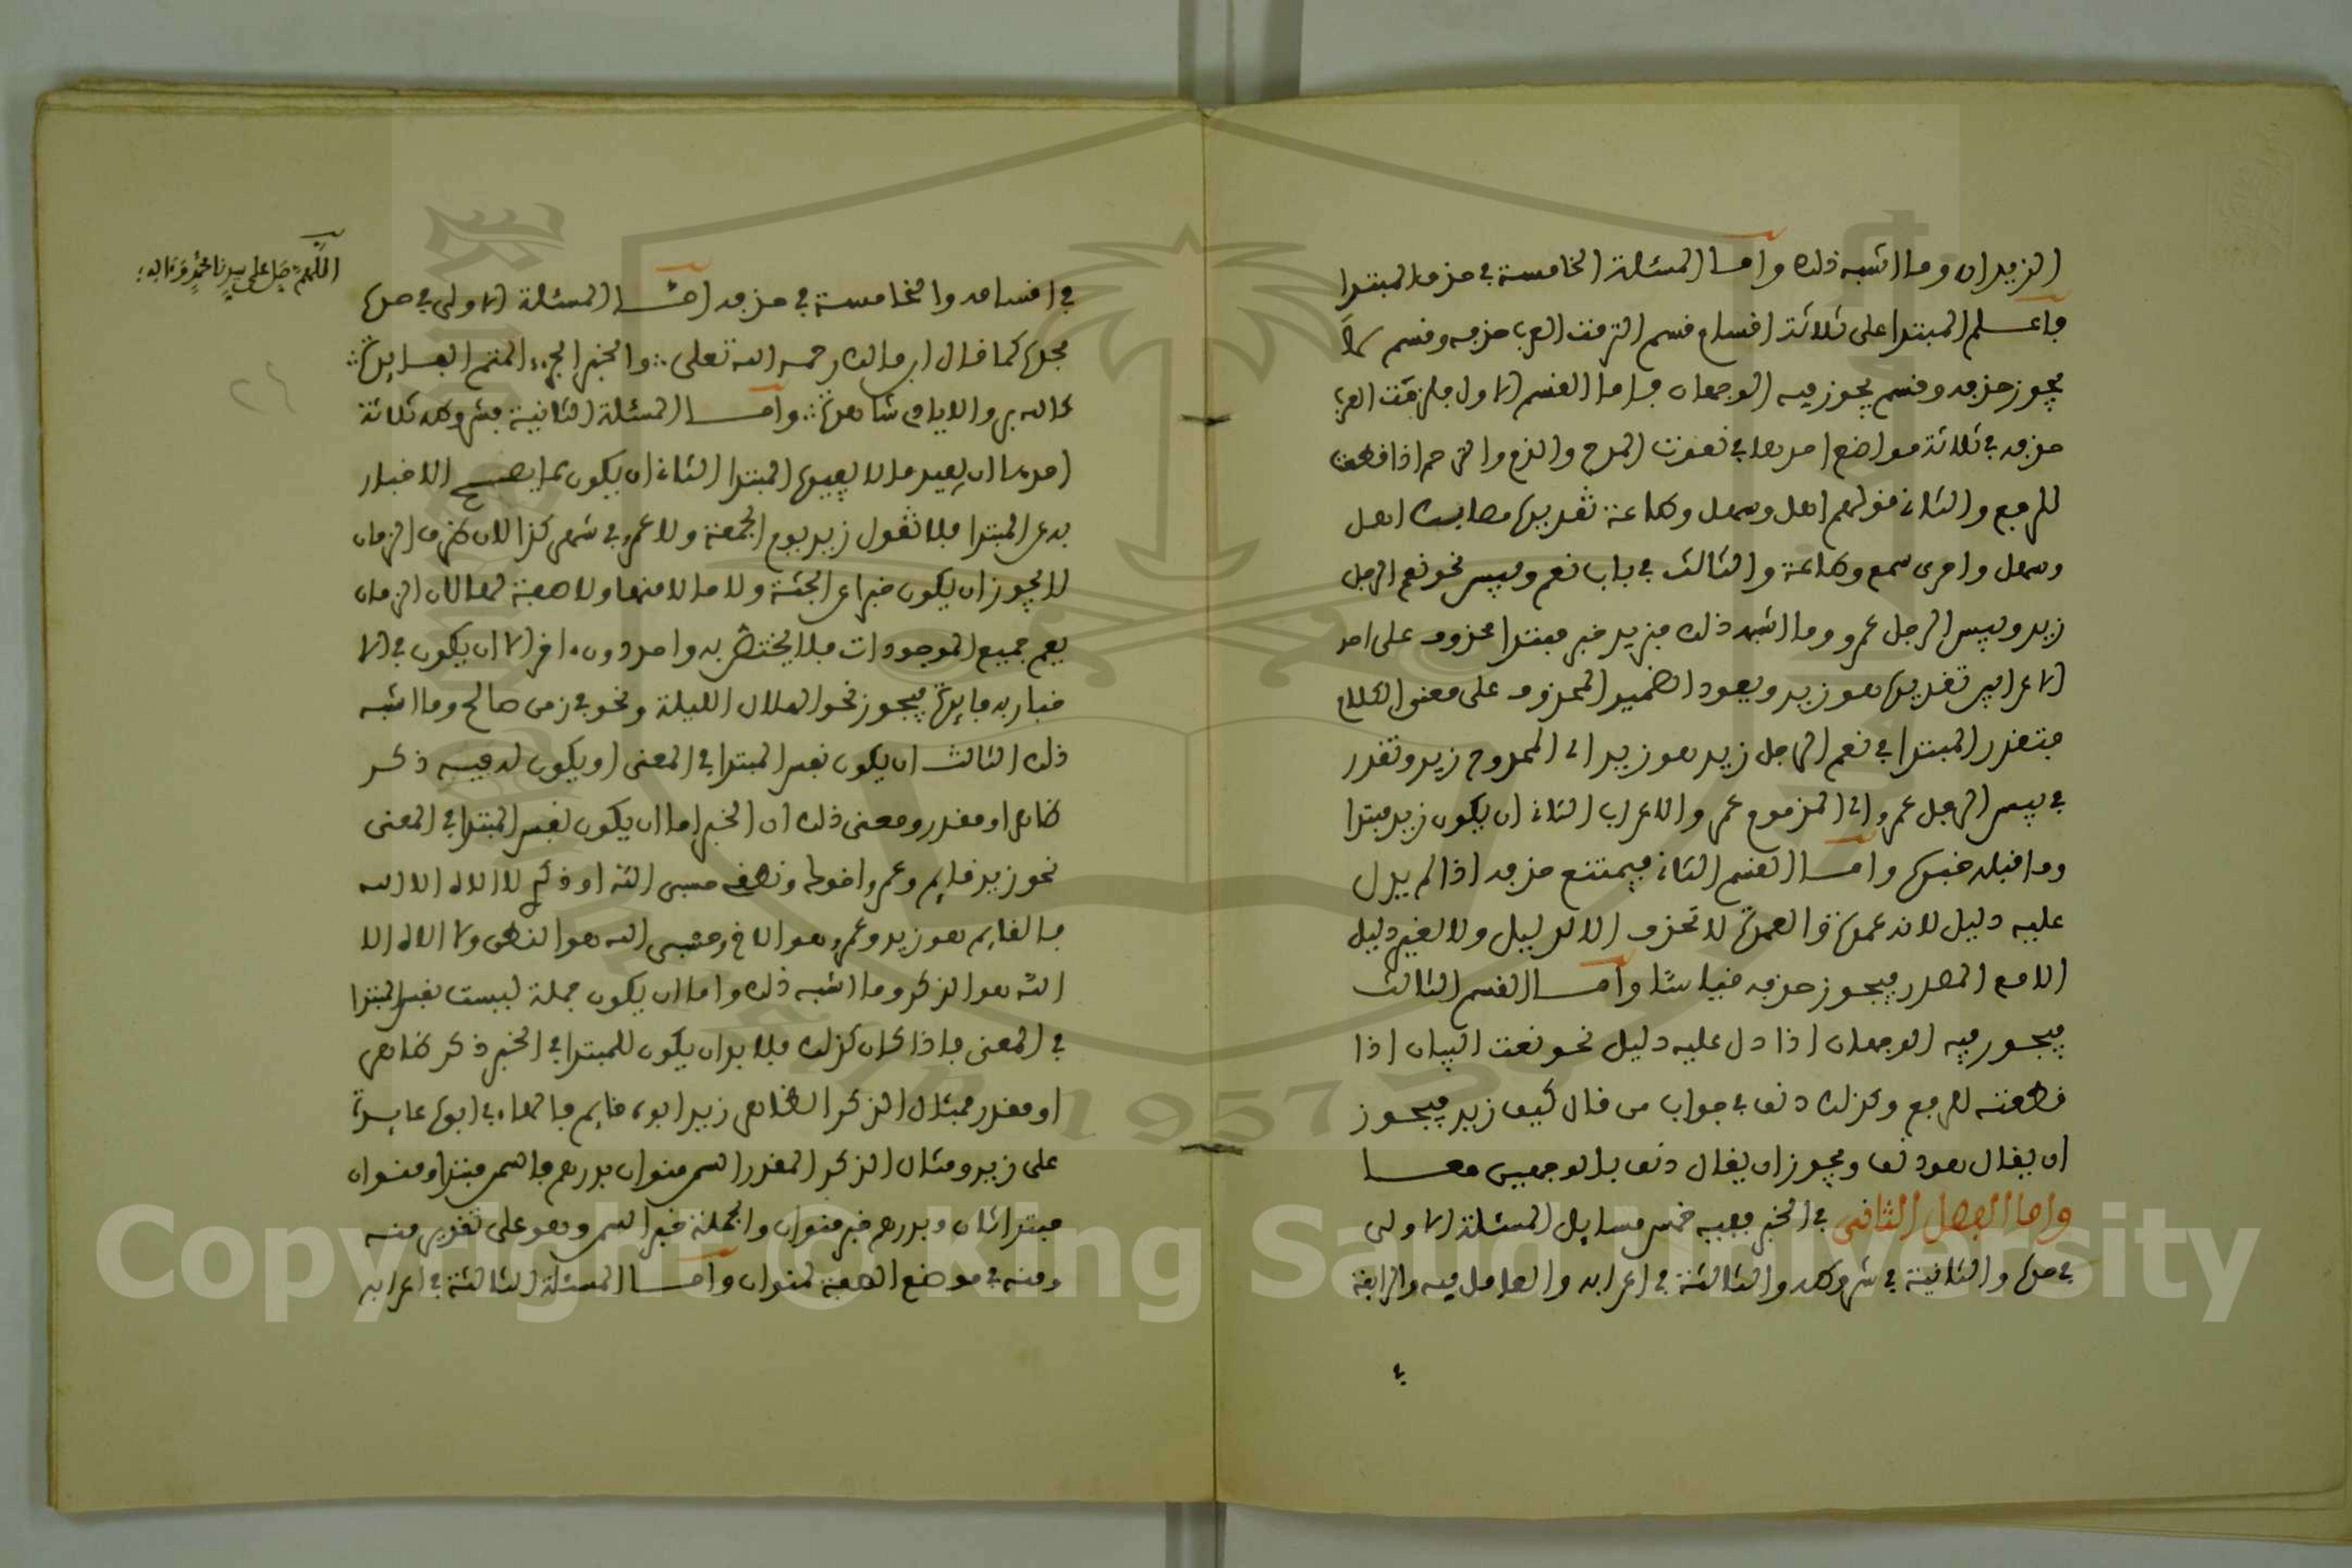 الزيدان وما اشبه ذلك واما المسئلة الخامسة في حذف المبتدا
فاعلم المبتدا على ثلاثة اقسام قسم التزمت العرب حذفه وقسم لا
يجوز حذفه وقسم يجوز فيه الوجهان فاما القسم الاول فالتزمت العرب
حذفه في ثلاثة مواضع احدها في نعوت المدح والذم والترحم اذا قطعت
للرفع والثاني قولهم اهل وسهل وطاعة تقديره مطلبك اهل
وسهل وامري سمع وطاعة والثالث في باب نعم وبيس نحو نعم الرجل
زيد وبيس الرجل عمرو وما اشبه ذلك فزيد خبر مبتدا محذوف على احد
الاعرابين تقديره هو زيد ويعود الضمير المحذوف على معنى الكلام
فتقدر المبتدا في نعم الرجل زيد هو زيد اي الممدوح زيد وتقدر
في بيس الرجل عمرو اي المذموم عمرو والاعراب الثاني ان يكون زيد مبتدا
وما قبله خبره واما القسم الثاني فيمتنع حذفه اذا لم يدل
عليه دليل لانه عمدة والعمدة لا تحذف الا لدليل ولا لغير دليل
الا مع المصدر فيجوز حذفه قياسا واما القسم الثالث
فيجوز فيه الوجهان اذا دل عليه دليل نحو نعت البيان اذا
قطعته للرفع وكذلك دنف في جواب من قال كيف زيد فيجوز
ان يقال هو دنف ويجوز ان يقال دنف بالوجهين معا
واما الفصل الثاني في الخبر ففيه خمس مسايل المسئلة الاولى
في حده والثانية في شروطه والثالثة في اعرابه والعامل فيه والرابعة
في
اللهم صل على سيدنا محمد وءاله
في اقسامه والخامسة في حذفه اما المسئلة الاولى في حده
فحده كما قال ابن مالك رحمه الله تعلى والخبر الجزء المتم الفايدة
كالله بر والايادي شاهدة واما المسئلة الثانية فشروطه ثلاثة
احدها ان يفيد ما لا يفيده المبتدا الثاني ان يكون مما يصح الاخبار
به عن المبتدا فلا تقول زيد يوم الجمعة ولا عمرو في شهر كذا لان ظرف الزمان
لا يجوز ان يكون خبرا عن الجثة ولا حالا منها ولا صفة لها لان الزمان
يعم جميع الموجودات فلا يختص به واحد دون ءاخر الا ان يكون في الا
خبار به فايدة فيجوز نحو الهلال الليلة ونحو في زمن صالح وما اشبه
ذلك الثالث ان يكون نفس المبتدا في المعنى او يكون له فيه ذكر
ظاهر او مقدر ومعنى ذلك ان الخبر اما ان يكون نفس المبتدا في المعنى
نحو زيد قايم وعمرو اخوك ونطقي حسبي الله او ذكري لا اله الا الله
فالقايم هو زيد وعمرو هو الاخ وحسبي الله هو النطق ولا اله الا
الله هو الذكر وما اشبه ذلك واما ان يكون جملة ليست نفس المبتدا
في المعنى فاذا كان كذلك فلا بد ان يكون للمبتدا في الخبر ذكر ظاهر
او مقدر فمثال الذكر الظاهر زيد ابوه قايم فالهاء في ابوه عايدة
على زيد ومثال الذكر المقدر السمن منوان بدرهم فالسمن مبتدا ومنوان
مبتدا ثان وبدرهم خبر منوان والجملة خبر السمن وهو على تقدير منه
ومنه في موضع الصفة لمنوان واما المسئلة الثالثة في اعرابه
Copyright © King Saud University
1957